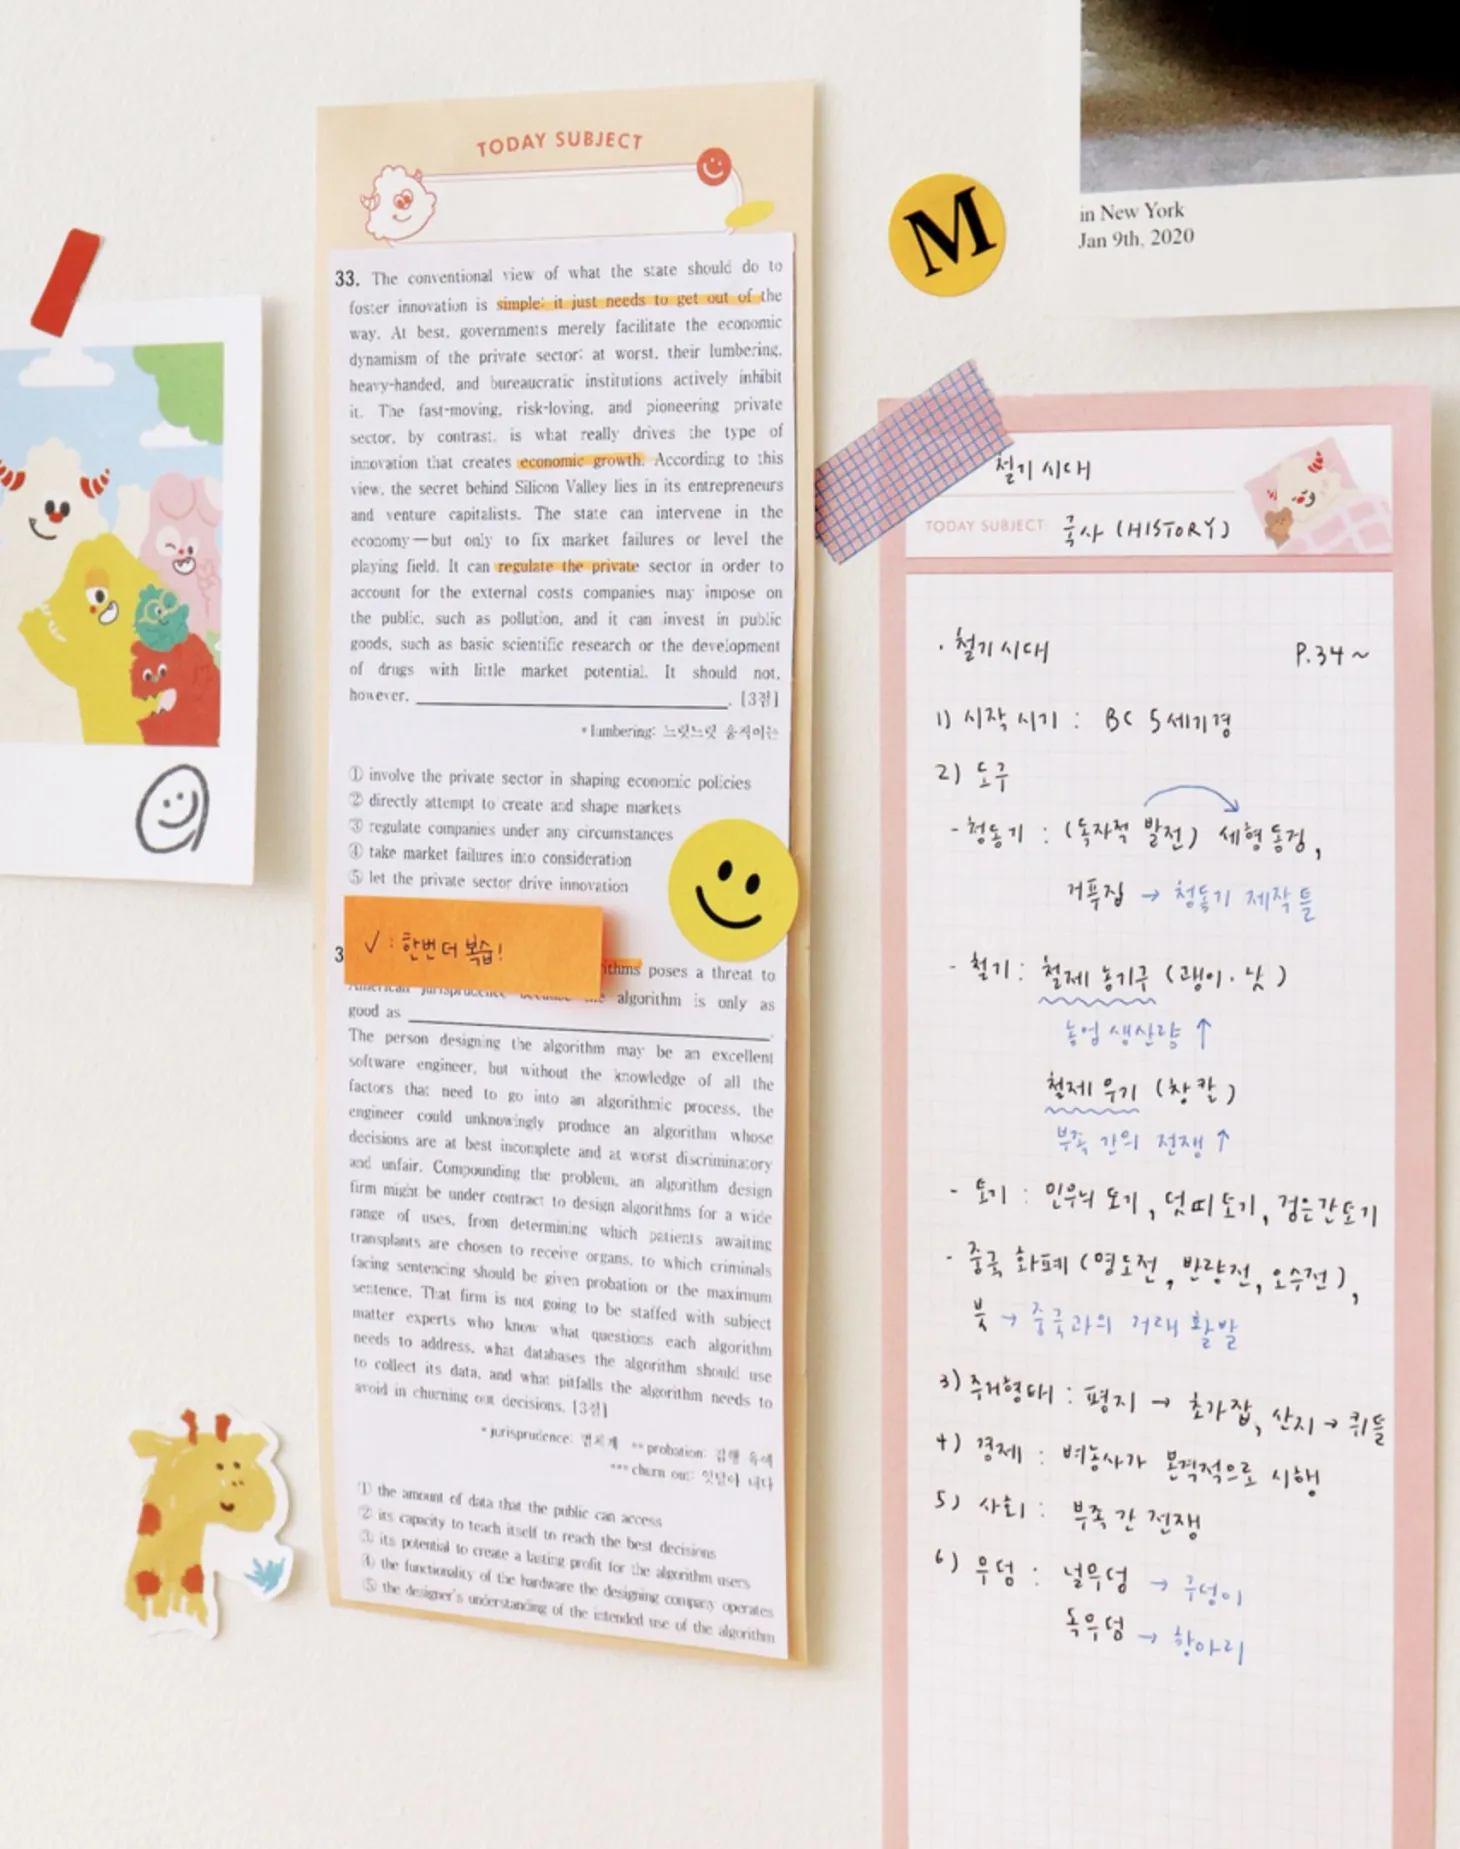 TODAY SUBJECT
33. The conventional view of what the state should do to
foster innovation is simple: it just needs to get out of the
way. At best, governments merely facilitate the economic
dynamism of the private sector; at worst, their lumbering,
heavy-handed, and bureaucratic institutions actively inhibit
it. The fast-moving, risk-loving, and pioneering private
sector, by contrast, is what really drives the type of
innovation that creates economic growth. According to this
view, the secret behind Silicon Valley lies in its entrepreneurs
and venture capitalists. The state can intervene in the
economy—but only to fix market failures or level the
playing field. It can regulate the private sector in order to
account for the external costs companies may impose on
the public, such as pollution, and it can invest in public
goods, such as basic scientific research or the development
of drugs with little market potential. It should not,
however, ____________. [3점]
*lumbering: 느릿느릿 움직이는
① involve the private sector in shaping economic policies
② directly attempt to create and shape markets
③ regulate companies under any circumstances
④ take market failures into consideration
⑤ let the private sector drive innovation
✓ : 한번 더 복습!
3
ithms poses a threat to
American jurisprudence because the algorithm is only as
good as ____________.
The person designing the algorithm may be an excellent
software engineer, but without the knowledge of all the
factors that need to go into an algorithmic process, the
engineer could unknowingly produce an algorithm whose
decisions are at best incomplete and at worst discriminatory
and unfair. Compounding the problem, an algorithm design
firm might be under contract to design algorithms for a wide
range of uses, from determining which patients awaiting
transplants are chosen to receive organs, to which criminals
facing sentencing should be given probation or the maximum
sentence. That firm is not going to be staffed with subject
matter experts who know what questions each algorithm
needs to address, what databases the algorithm should use
to collect its data, and what pitfalls the algorithm needs to
avoid in churning out decisions. [3점]
*jurisprudence: 법체계 **probation: 집행 유예
***churn out: 잇달아 내다
① the amount of data that the public can access
② its capacity to teach itself to reach the best decisions
③ its potential to create a lasting profit for the algorithm users
④ the functionality of the hardware the designing company operates
⑤ the designer's understanding of the intended use of the algorithm
M
in New York
Jan 9th, 2020
철기 시대
TODAY SUBJECT 국사 (HISTORY)
· 철기 시대 P.34~
1) 시작 시기 : BC 5세기경
2) 도구
- 청동기 : (독자적 발전) 세형동검,
거푸집 → 청동기 제작 틀
- 철기 : 철제 농기구 (괭이·낫)
농업 생산량 ↑
철제 무기 (창칼)
부족 간의 전쟁 ↑
- 토기 : 민무늬 토기, 덧띠토기, 검은간토기
- 중국 화폐 (명도전, 반량전, 오수전),
붓 → 중국과의 거래 활발
3) 주거형태 : 평지 → 초가집, 산지 → 귀틀
4) 경제 : 벼농사가 본격적으로 시행
5) 사회 : 부족 간 전쟁
6) 무덤 : 널무덤 → 구덩이
독무덤 → 항아리